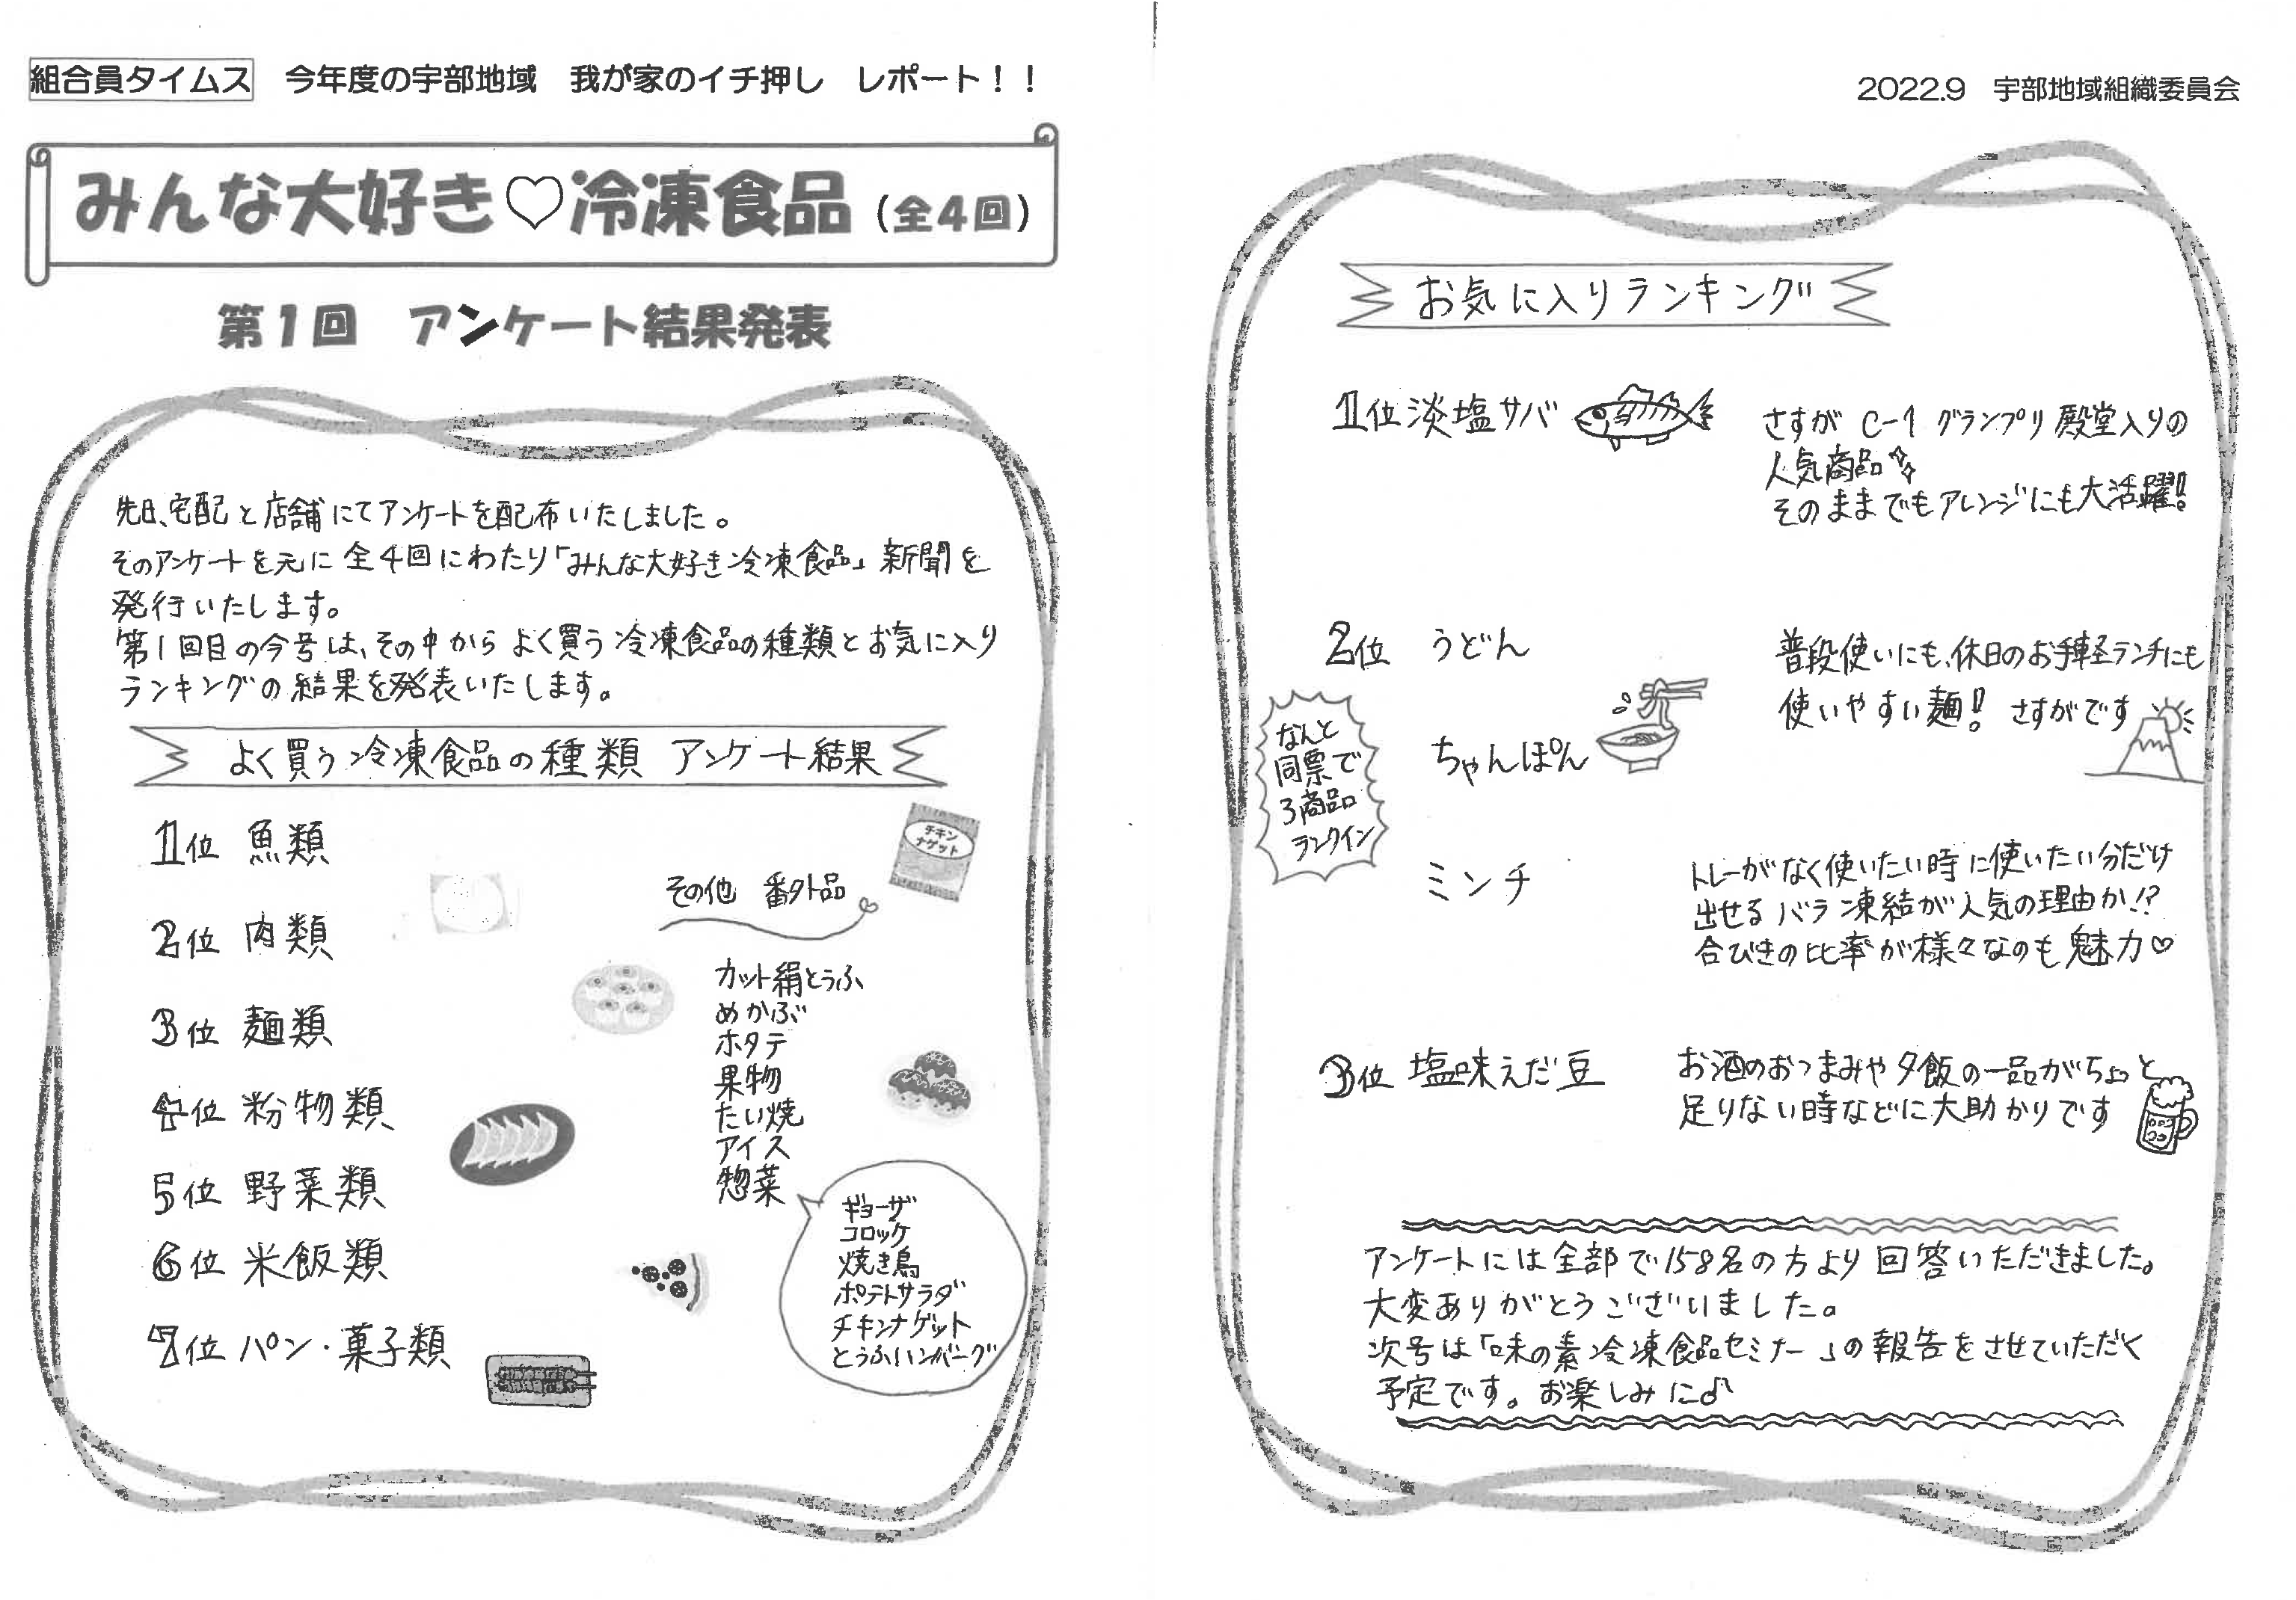 組合員タイムス　今年度の宇部地域　我が家のイチ押し　レポート！！
みんな大好き♡冷凍食品（全４回）
第１回　アンケート結果発表
先日、宅配と店舗にてアンケートを配布いたしました。
そのアンケートを元に全４回にわたり「みんな大好き冷凍食品」新聞を
発行いたします。
第１回目の今号は、その中からよく買う冷凍食品の種類とお気に入り
ランキングの結果を発表いたします。
よく買う冷凍食品の種類　アンケート結果
1位 魚類
2位 肉類
3位 麺類
4位 粉物類
5位 野菜類
6位 米飯類
7位 パン・菓子類
チキン
ナゲット
その他　番外品
カット絹とうふ
めかぶ
ホタテ
果物
たい焼
アイス
惣菜
ギョーザ
コロッケ
焼き鳥
ポテトサラダ
チキンナゲット
とうふハンバーグ
2022.9　宇部地域組織委員会
お気に入りランキング
1位 淡塩サバ
さすが C-1 グランプリ殿堂入りの
人気商品
そのままでもアレンジにも大活躍!!
2位　うどん
ちゃんぽん
普段使いにも、休日のお手軽ランチにも
使いやすい麺！ さすがです
なんと
同票で
3商品
ランクイン
ミンチ
トレーがなく使いたい時に使いたい分だけ
出せるバラ凍結が人気の理由か!?
合びきの比率が様々なのも魅力♡
3位 塩味えだ豆
お酒のおつまみや夕飯の一品がちょっと
足りない時などに大助かりです
アンケートには全部で158名の方より回答いただきました。
大変ありがとうございました。
次号は「味の素冷凍食品セミナー」の報告をさせていただく
予定です。お楽しみに♪